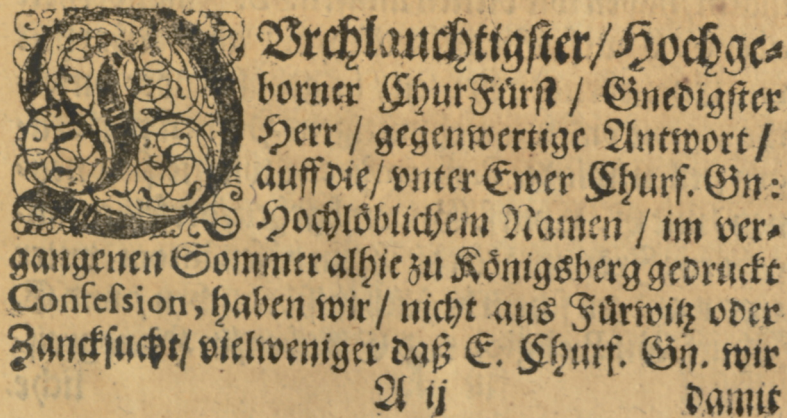 DVrchlauchtigſter/ Hochge⸗
borner ChurFürſt / Gnedigſter
Herr / gegenwertige Antwort /
auff die/ vnter Ewer Churf. Gn:
Hochlöblichem Namen / im ver⸗
gangenen Sommer alhie zu Königsberg gedruckt
Confeſsion, haben wir / nicht aus Fürwitz oder
Zanckſucht/ vielweniger daß E. Churf. Gn. wir
A ij damit